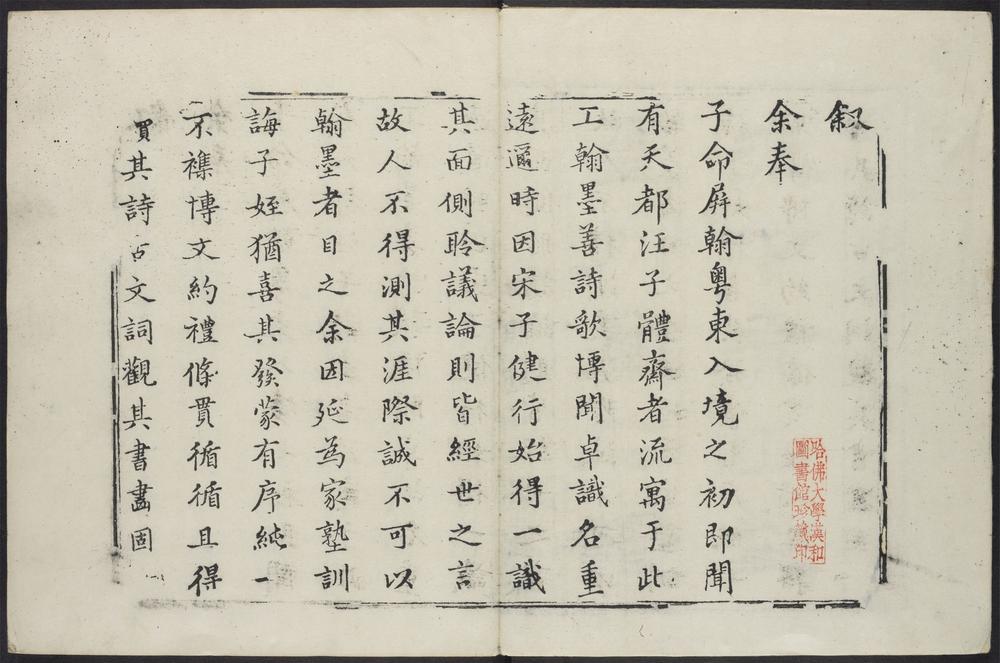 叙
余奉
子命屏翰粤東入境之初即聞
有天都汪子體齋者流寓于此
工翰墨善詩歌博聞卓識名重
遠邇時因宋子健行始得一識
其面側聆議論則皆經世之言
故人不得測其涯際誠不可以
翰墨者目之余因延為家塾訓
誨子姪猶喜其發蒙有序純一
不襍博文約禮條貫循循且得
買其詩古文詞觀其書畫固
哈佛大學漢和
圖書館珍藏印